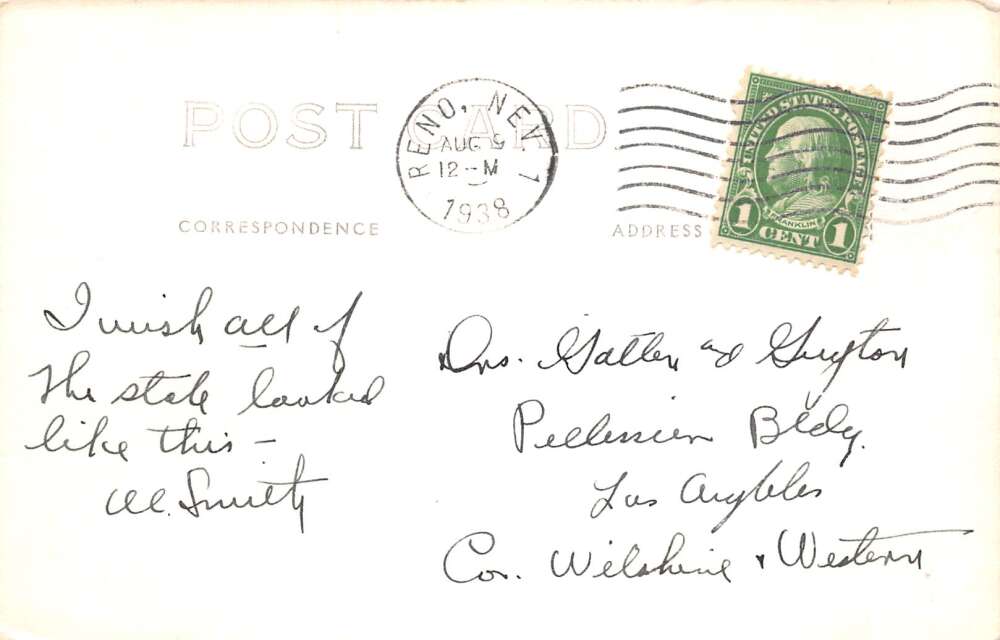 POST CARD
RENO, NEV. 1
AUG 9
12-M
1938
UNITED STATES POSTAGE
FRANKLIN
1 CENT 1
CORRESPONDENCE
ADDRESS
I wish all of
the state looked
like this -
Al. Smith
Drs. and Guyton
Pellissier Bldg.
Los Angeles
Cor. Wilshire & Western